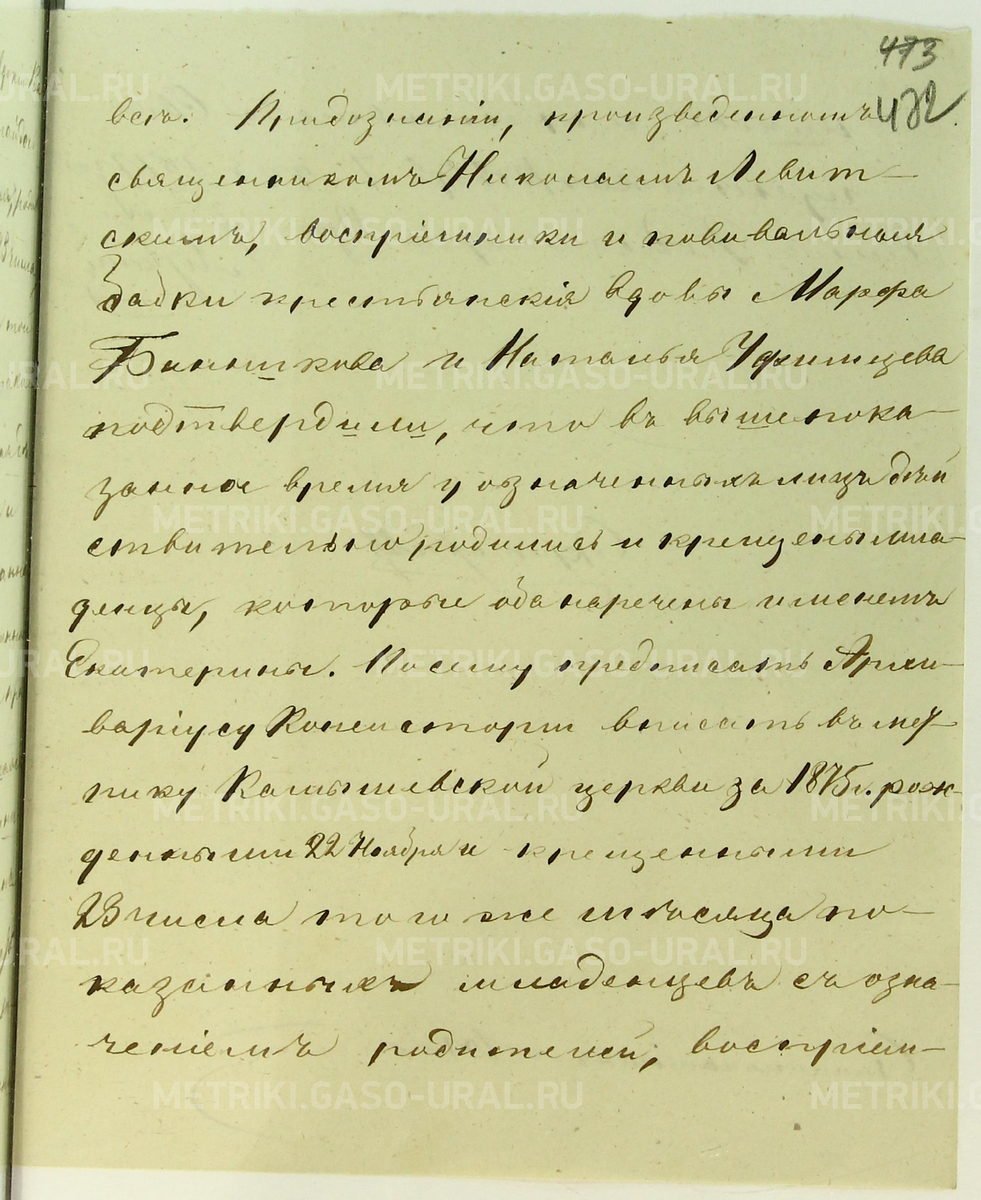 473
472
въ. При дознаніи, произведенномъ
священникомъ Николаемъ Левит-
скимъ, воспріемники и повивальныя
бабки крестьянскія вдовы Марфа
и Наталья Уфимцева
подтвердили, что въ вышепока-
занное время у означенныхъ лицъ дѣй
ствительно родились и крещены мла-
денцы, которые оба наречены именемъ
Екатерины. Посему предписать Архи-
варіусу Консисторіи вписать въ мет
рику Камышевской церкви за 1875 г. рож-
денными 22 Ноября и крещенными
23 числа того же мѣсяца по-
казанныхъ младенцевъ съ озна-
ченіемъ родителей, воспріем-
METRIKI.GASO-URAL.RU